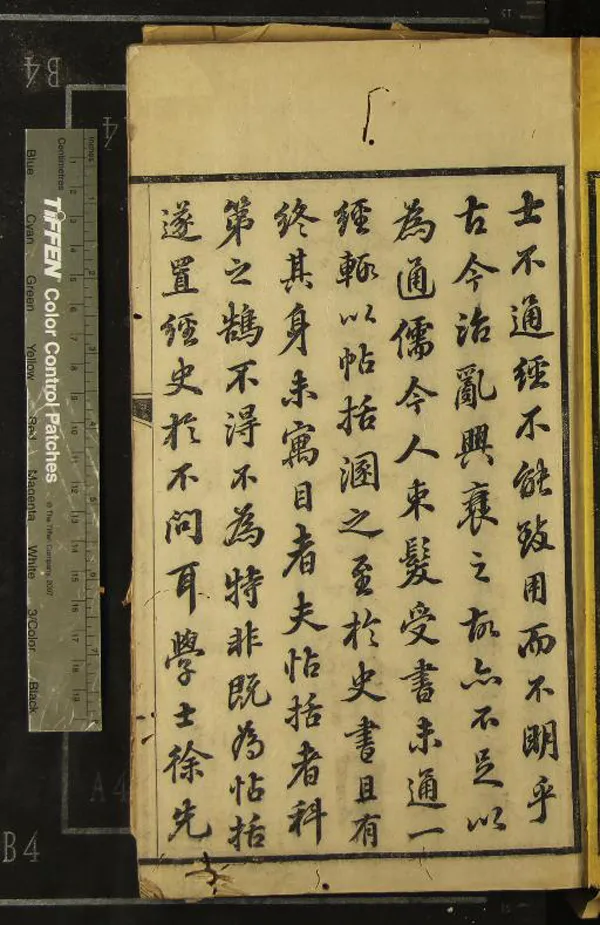 士不通經不能致用而不明乎
古今治亂興衰之故亦不足以
為通儒今人束髮受書未通一
經輒以帖括溷之至於史書且有
終其身未寓目者夫帖括者科
第之鵠不得不為特非既為帖括
遂置經史於不問耳學士徐先
Inches
Centimetres
TIFFEN Color Control Patches
© The Tiffen Company, 2007
Blue
Cyan
Green
Yellow
Red
Magenta
White
3/Color
Black
B4
A4
B4